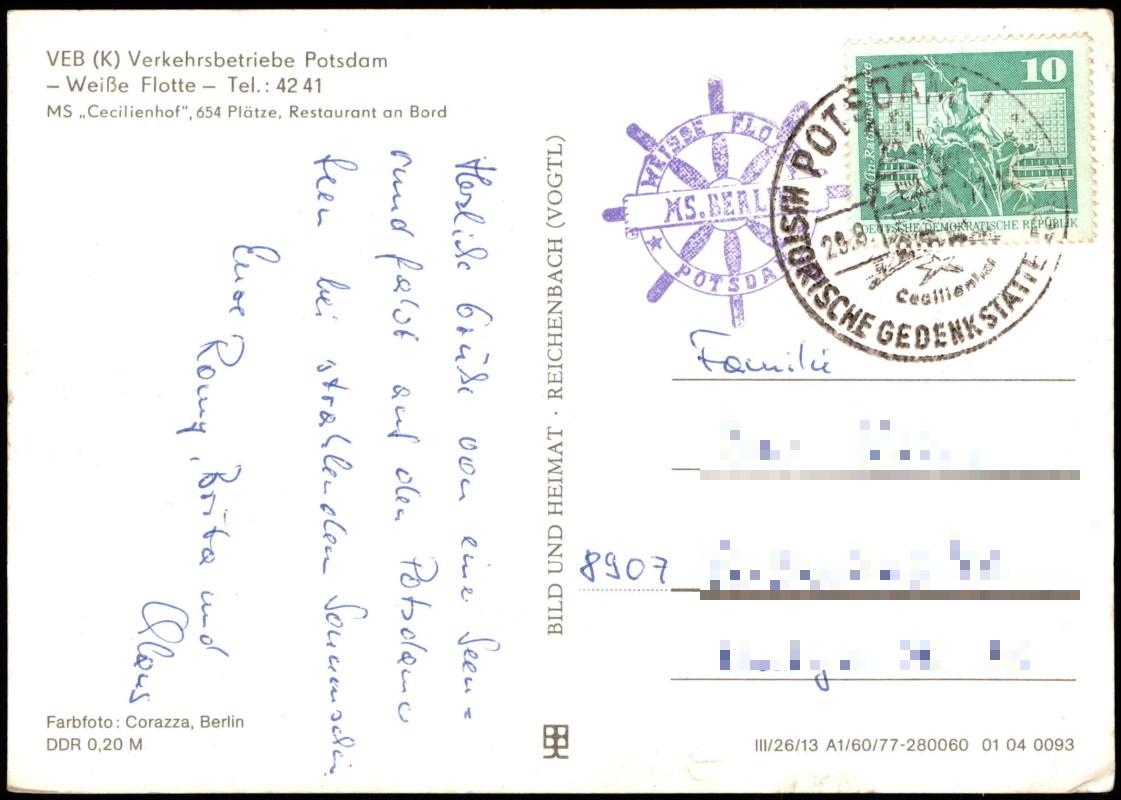 VEB (K) Verkehrsbetriebe Potsdam
– Weiße Flotte – Tel.: 42 41
MS „Cecilienhof", 654 Plätze, Restaurant an Bord
Herzliche Grüße von einer Seen=
rund fahrt auf den Potsdamer
Seen bei strahlenden Sonnenschein
Eure Romy, Britta und
Klaus
Farbfoto: Corazza, Berlin
DDR 0,20 M
BILD UND HEIMAT · REICHENBACH (VOGTL)
WEISSE FLO
MS. BERLI
POTSDA
POTSDAM 1
HISTORISCHE GEDENKSTÄTTE
29.8.
Cecilienhof
10
DEUTSCHE DEMOKRATISCHE REPUBLIK
Familie
8907
III/26/13 A1/60/77-280060 01 04 0093